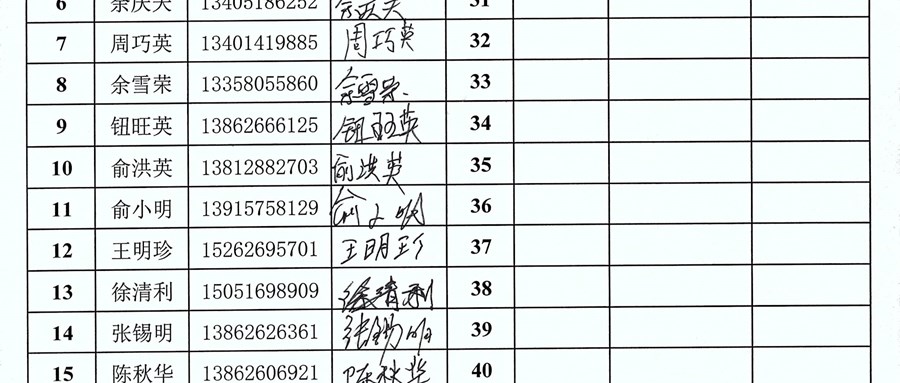 6 余庆关 13405186252 余庆关 31
7 周巧英 13401419885 周巧英 32
8 余雪荣 13358055860 余雪荣 33
9 钮旺英 13862666125 钮旺英 34
10 俞洪英 13812882703 俞洪英 35
11 俞小明 13915758129 俞小明 36
12 王明珍 15262695701 王明珍 37
13 徐清利 15051698909 徐清利 38
14 张锡明 13862626361 张锡明 39
15 陈秋华 13862606921 陈秋华 40